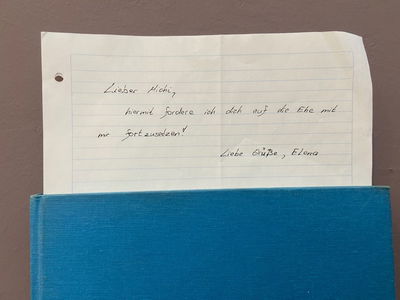 Lieber Michi,
hiermit fordere ich dich auf die Ehe mit
mr fortzusetzen!
Liebe Grüße, Elena